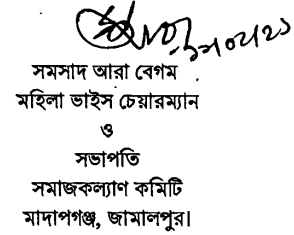 সমসাদ আরা বেগম
মহিলা ভাইস চেয়ারম্যান
ও
সভাপতি
সমাজকল্যাণ কমিটি
মাদাপগঞ্জ, জামালপুর।